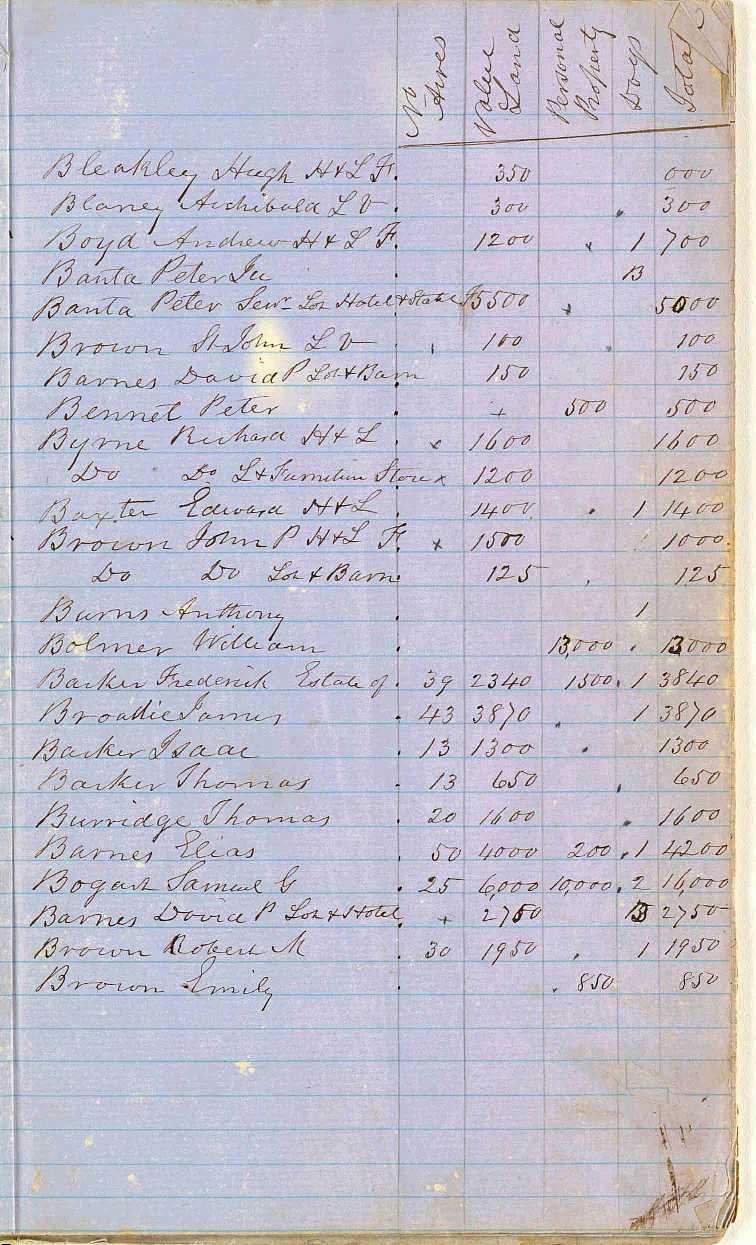 No Acres Value Land Personal Property Dogs Total
Bleakley Hugh H & L F. 350 000
Blaney Archibald L V . 300 300
Boyd Andrew H & L F. 1200 1 700
Banta Peter Ju . B
Banta Peter Senr Lot Hotel & Stable 5500 5000
Brown St John L V 100 100
Barnes David P Lot & Barn 150 150
Bennet Peter + 500 500
Byrne Richard H & L . x 1600 1600
Do Do L & Furniture Store x 1200 1200
Baxter Edward H & L . 1400 1 1400
Brown John P H & L F. x 1500 1000
Do Do Lot & Barn 125 125
Burns Anthony . 1
Bolmer William . 13,000 13000
Barker Frederick Estate of . 39 2340 1500 1 3840
James . 43 3870 1 3870
Barker Isaac . 13 1300 1300
Barker Thomas . 13 650 650
Burridge Thomas . 20 1600 1600
Barnes Elias . 50 4000 200 1 4200
Bogart Samuel G . 25 6,000 10,000 2 16,000
Barnes David P Lot & Hotel + 2750 2750
Brown Robert M . 30 1950 1 1950
Brown Emily . 850 850